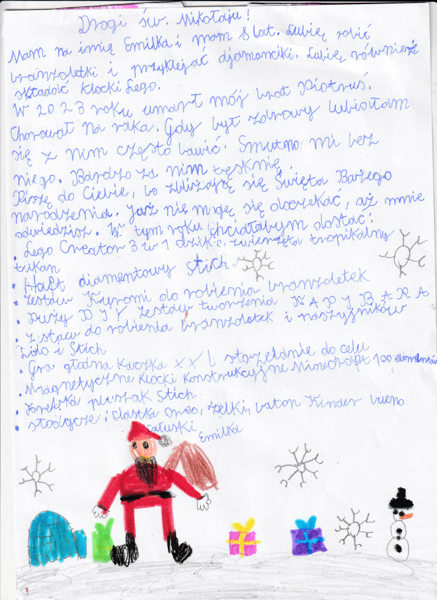 Drogi św. Mikołaju!
Mam na imię Emilka i mam 8 lat. Lubię robić
branzoletki i przyklejać djamenciki. Lubię również
składać klocki Lego.
W 2023 roku umarł mój brat Piotruś.
Chorował na raka. Gdy był zdrowy lubiłam
się z nim często bawić. Smutno mi bez
niego. Bardzo za nim tęsknię.
Piszę do Ciebie, bo zbliżają się Święta Bożego
narodzenia. Już nie mogę się doczekać, aż mnie
odwiedzisz. W tym roku chciałabym dostać:
• Lego Creator 3 w 1 dzikie zwierzęta tropikalny
tukan
• Haft diamentowy Stich
• Zestaw Kuromi do robienia branzoletek
• Duży DIY zestaw tworzenia KAPIBARA
• Zestaw do robienia branzoletek i naszyjników
Lilo i Stich
• Gra głodna kaczka XXL strzelanie do celu
• Magnetyczne klocki konstrukcyjne Minecraft 100 elementów
• Torebka pluszak Stich
• słodycze: ciastka oreo, żelki, baton Kinder Bueno
całuski
Emilka